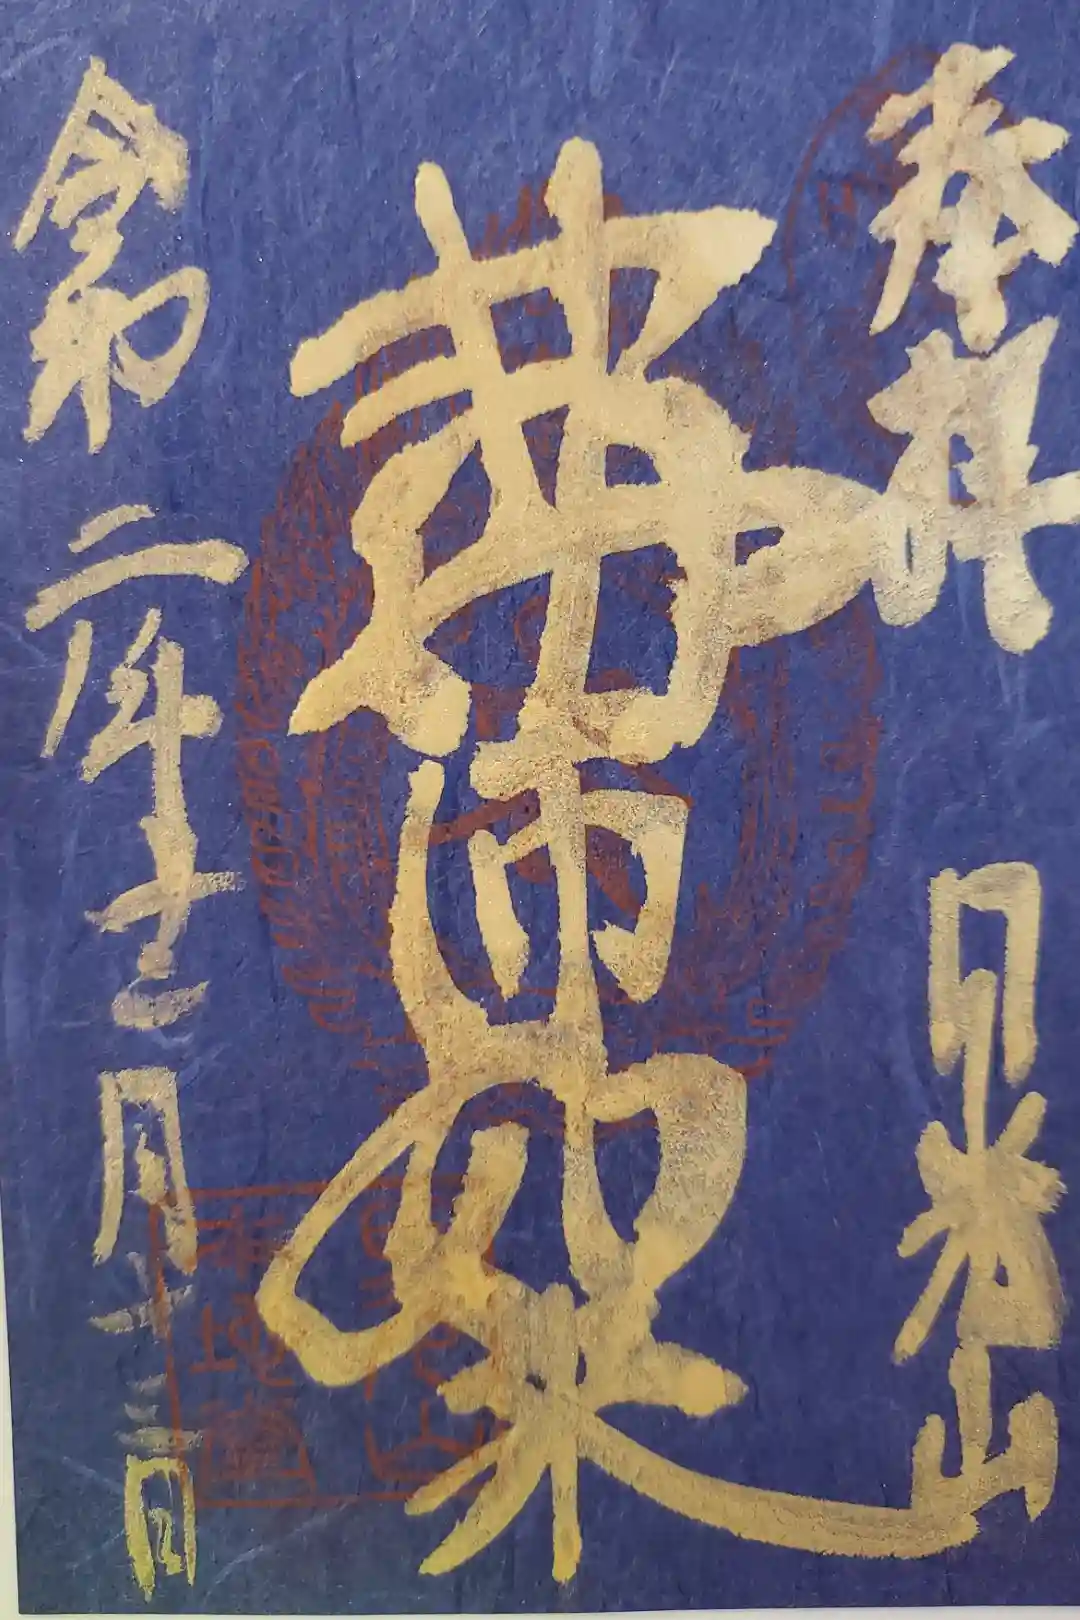 奉拝 日光山
薬師如来
令和二年十二月十三日